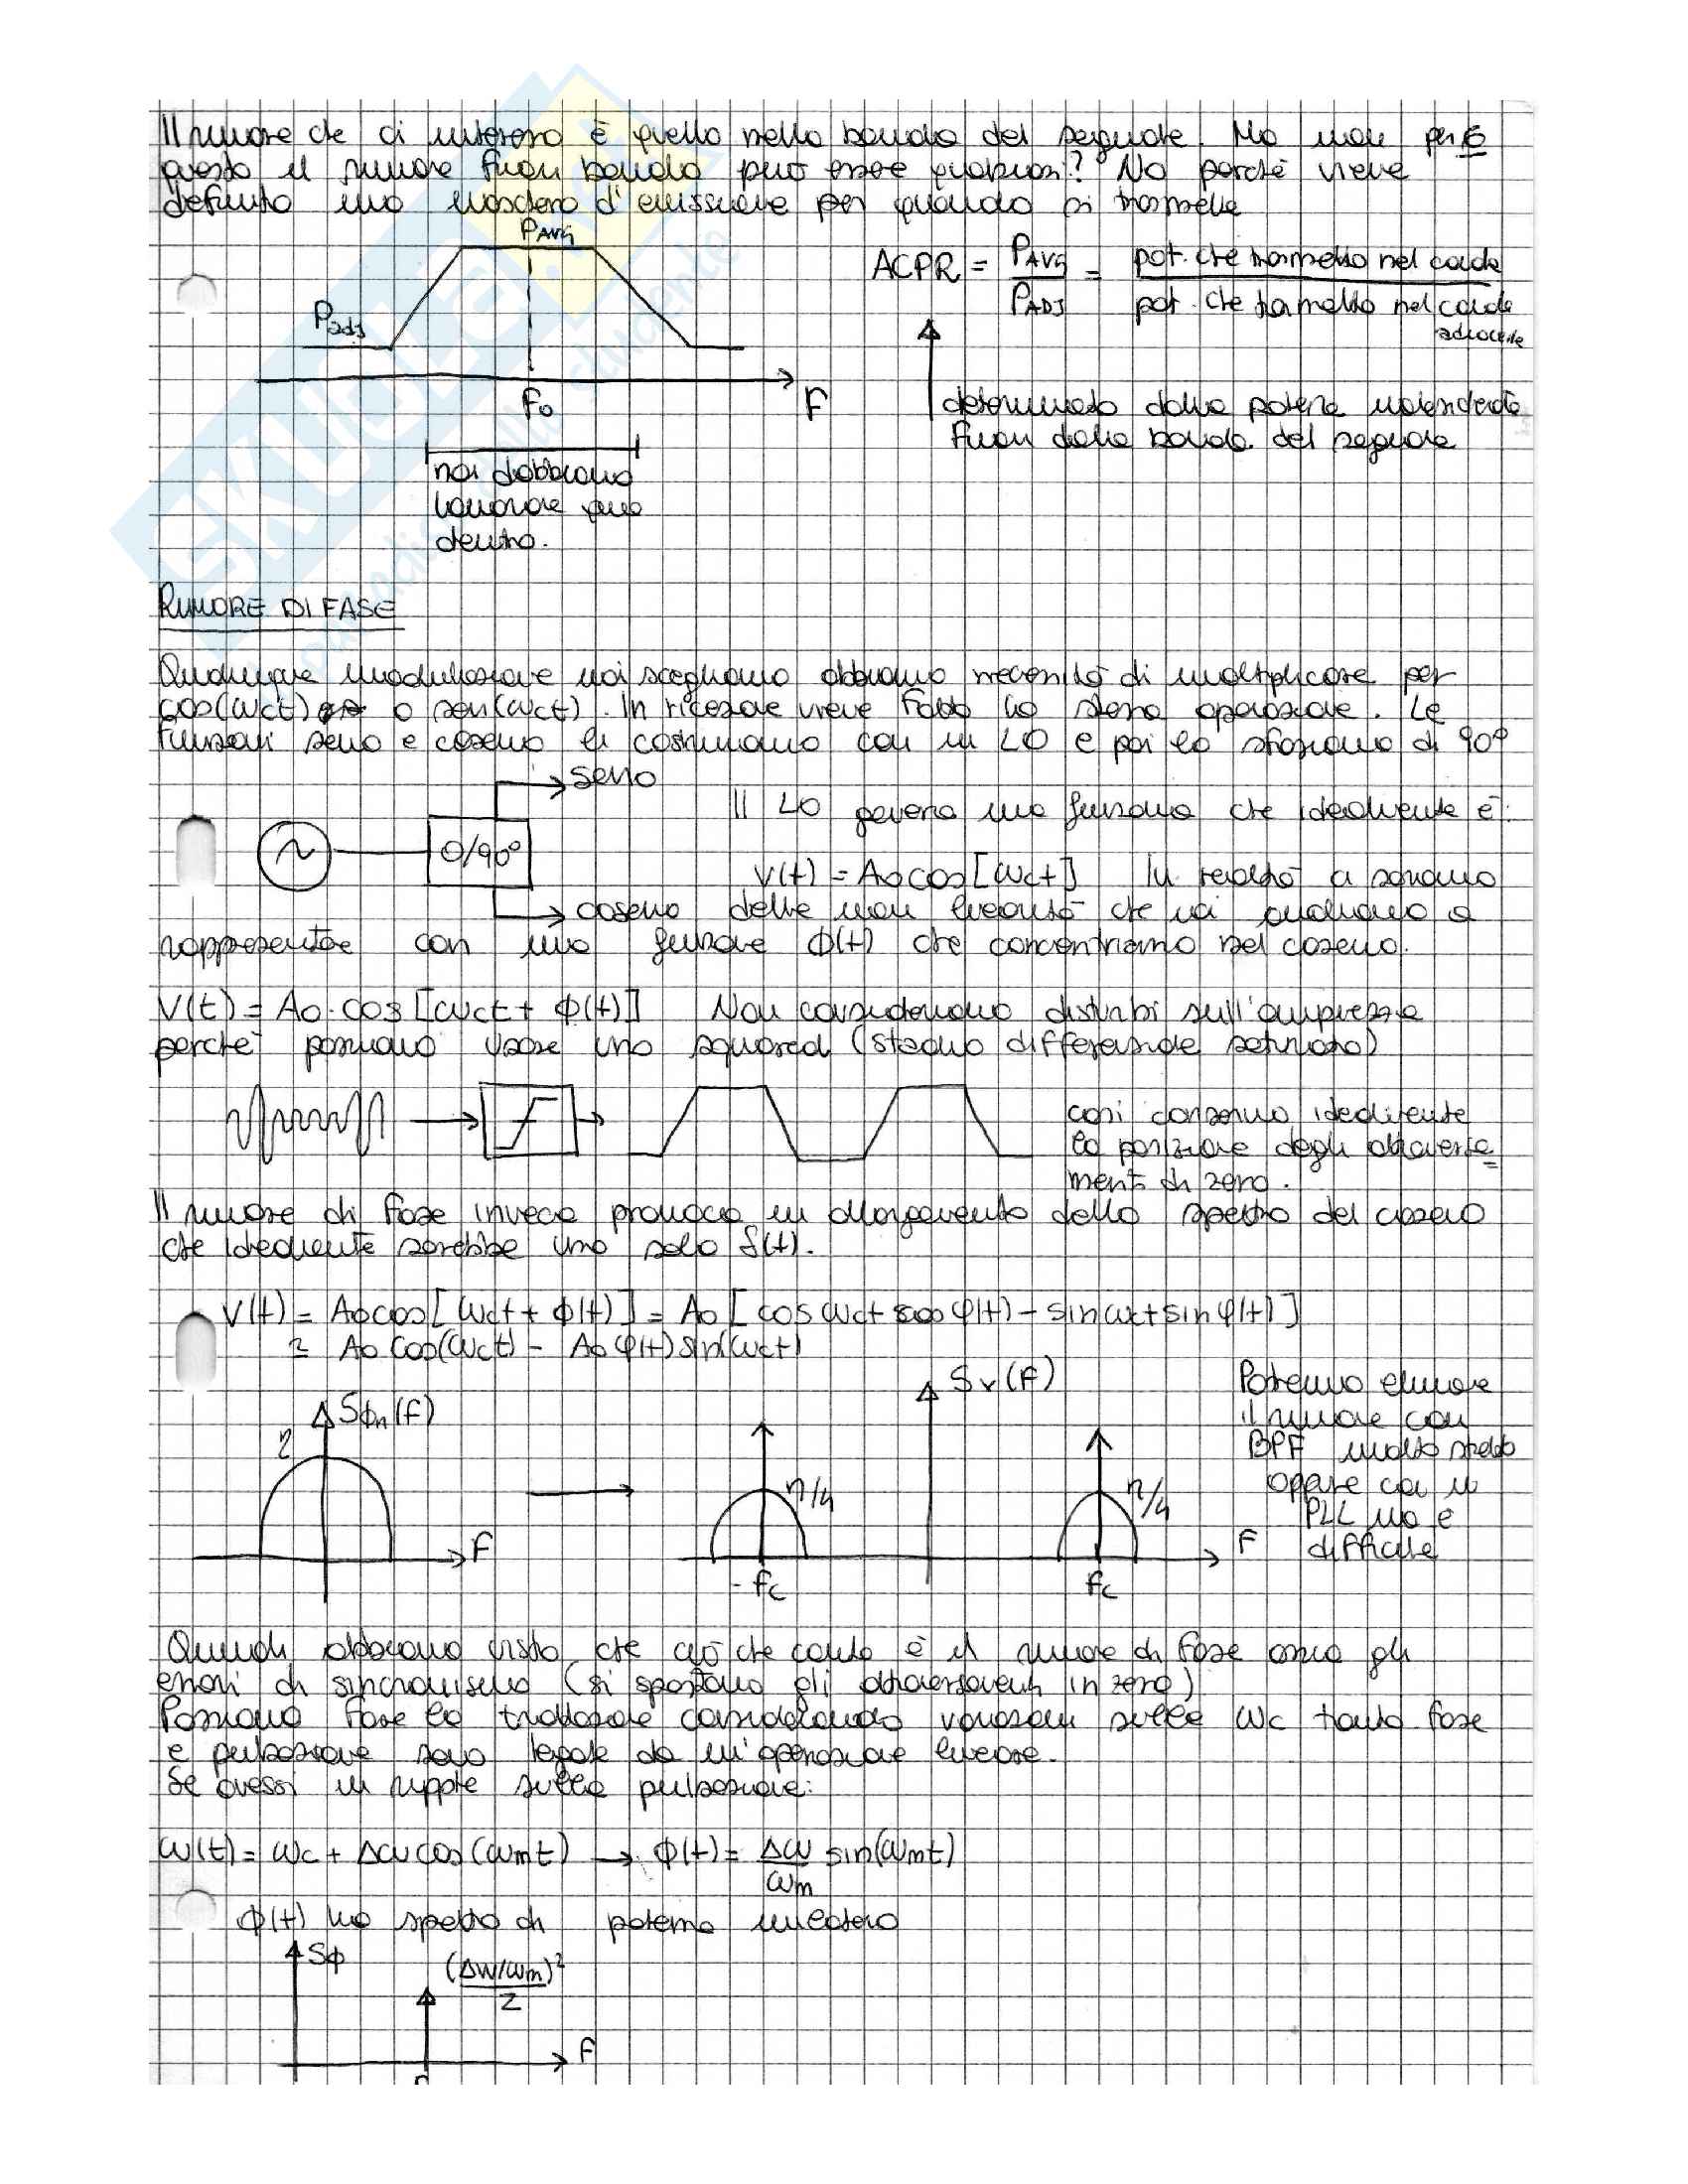 Il rumore che ci interessa è quello nella banda del segnale. Ma non per
questo il rumore fuori banda può essere qualsiasi? No perchè viene
definita una maschera d'emissione per quando si trasmette
PAVG
Padj
F0
F
noi dobbiamo
lavorare qua
dentro.
ACPR = PAVG / PADJ = pot. che trasmetto nel canale / pot. che trasmetto nel canale adiacente
determinato dalla potenza
fuori dalla banda del segnale
RUMORE DI FASE
Qualunque modulazione noi scegliamo abbiamo necessità di moltiplicare per
cos(ωct) o sen(ωct). In ricezione viene fatta la stessa operazione. Le
funzioni seno e coseno le costruiamo con un LO e poi lo sfasiamo di 90°
seno
0/90°
coseno
Il LO genera una funzione che idealmente è:
V(t) = A0 cos[ωct] In realtà ci saranno
delle non linearità che noi andiamo a
rappresentare con una funzione ϕ(t) che concentriamo nel coseno.
V(t) = A0 · cos[ωct + ϕ(t)] Non consideriamo disturbi sull'ampiezza
perchè possiamo usare uno squared (stadio differenziale saturato)
così conservo idealmente
la posizione degli attraversa=
menti di zero.
Il rumore di fase invece provoca un allargamento dello spettro del coseno
che idealmente sarebbe una sola δ(t).
V(t) = A0 cos[ωct + ϕ(t)] = A0 [cos ωct cos φ(t) - sin ωct sin φ(t)]
≃ A0 cos(ωct) - A0 φ(t) sin(ωct)
Sϕn(f)
η
F
Sv(F)
η/4
η/4
-fc
fc
F
Potremmo eliminare
il rumore con
BPF molto stretto
oppure con un
PLL ma è
difficile
Quindi abbiamo visto che ciò che conta è il rumore di fase ossia gli
errori di sincronismo (si spostano gli attraversamenti in zero)
Possiamo fare la trattazione considerando variazioni sulla ωc tanto fase
e pulsazione sono legate da un'operazione lineare.
Se avessi un ripple sulla pulsazione:
ω(t) = ωc + Δω cos(ωmt) → ϕ(t) = Δω/ωm sin(ωmt)
ϕ(t) ha spettro di potenza unilatero
Sϕ
(Δω/ωm)²/2
F